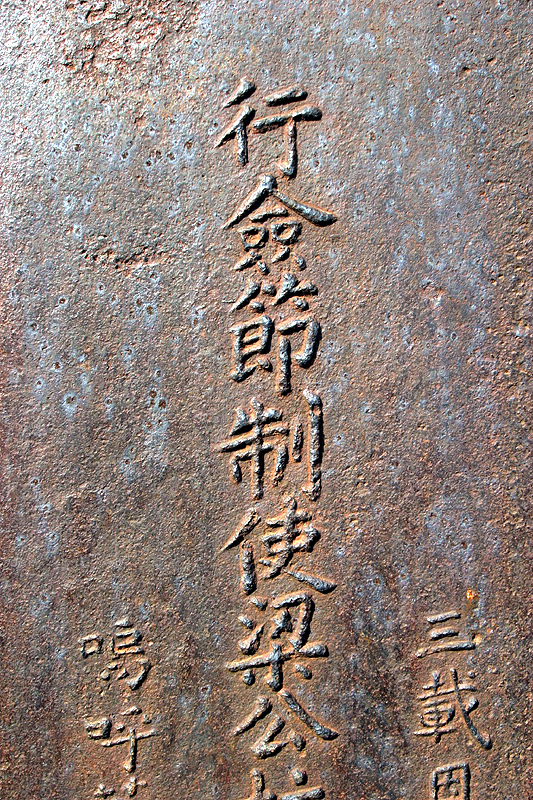 三載
行僉節制使梁公
嗚呼